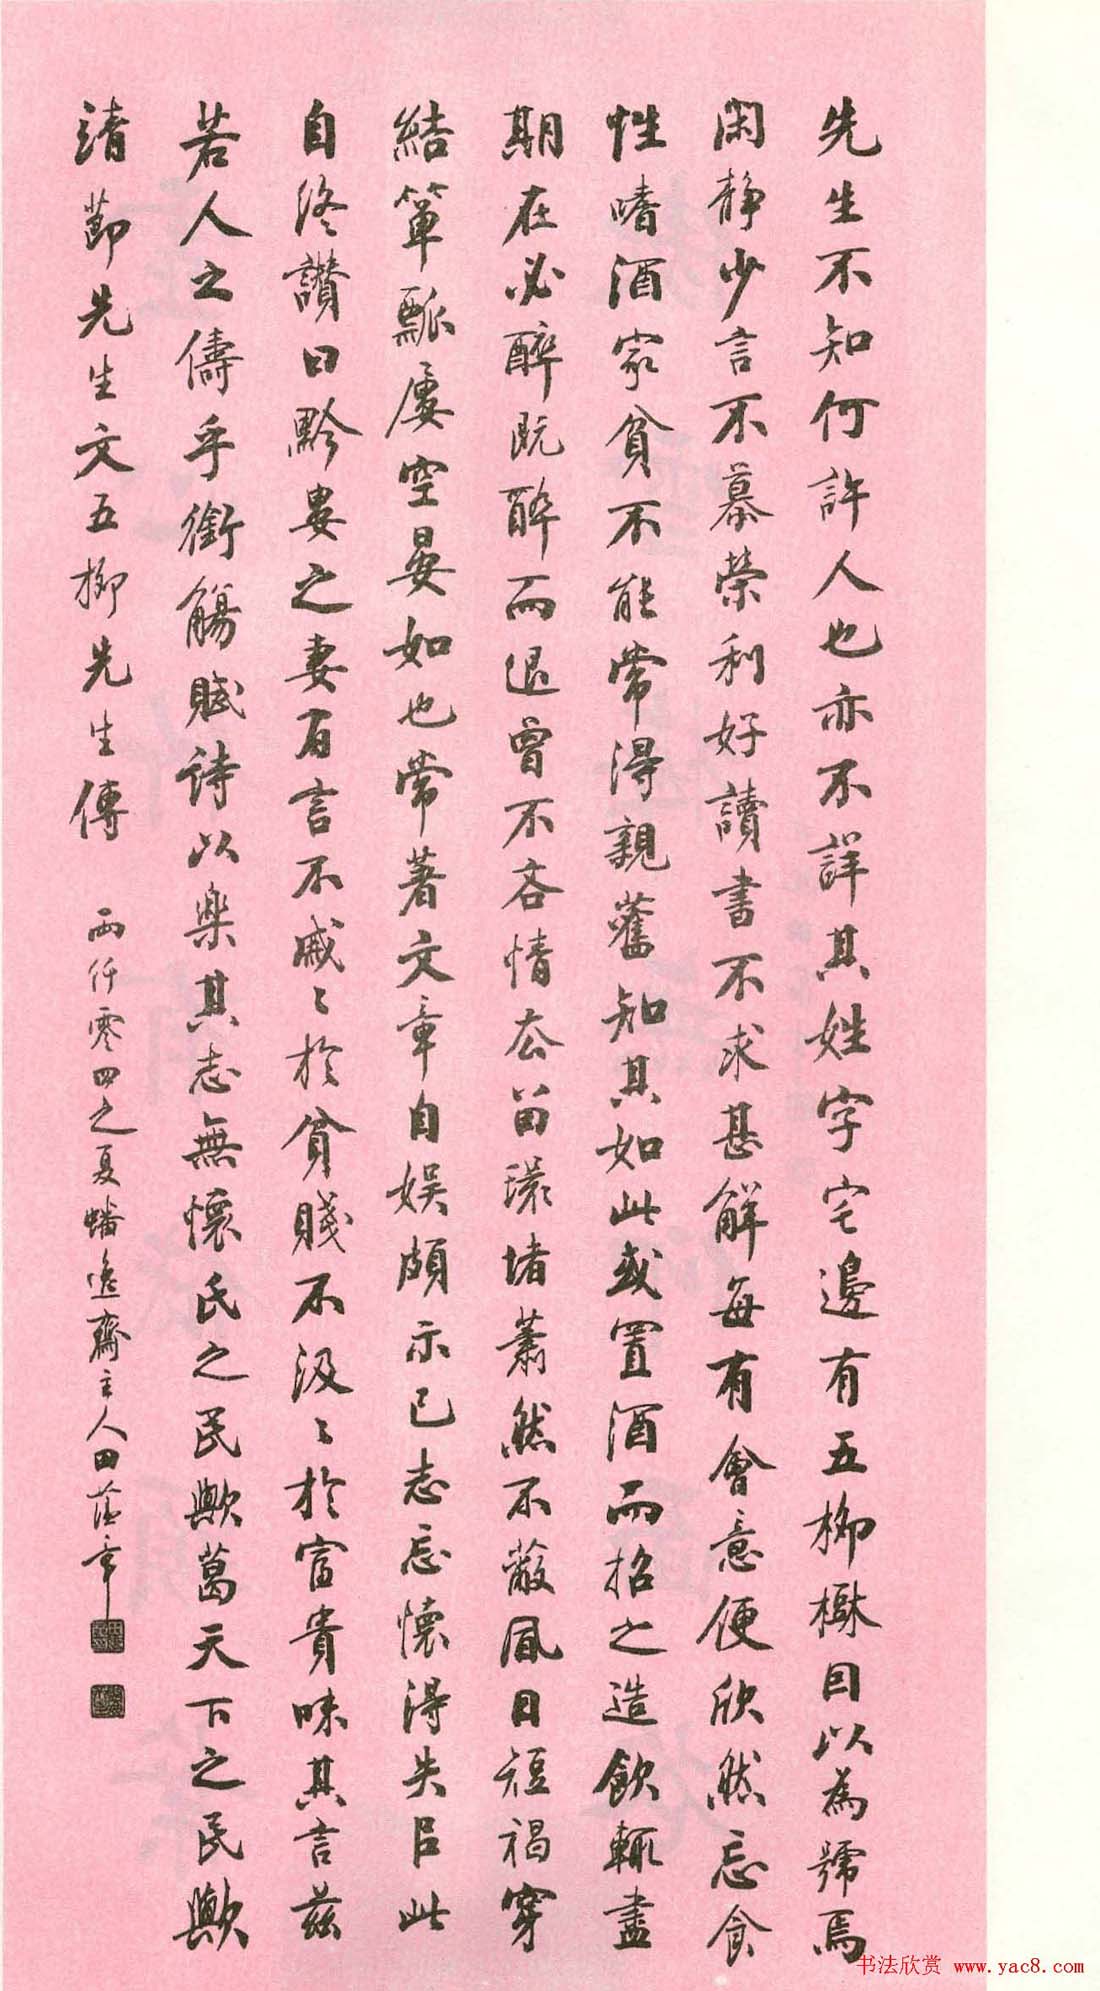 先生不知何許人也亦不詳其姓字宅邊有五柳樹因以為號焉
閑静少言不慕榮利好讀書不求甚解每有會意便欣然忘食
性嗜酒家貧不能常得親舊知其如此或置酒而招之造飲輒盡
期在必醉既醉而退曾不吝情去留環堵蕭然不蔽風日短褐穿
結簞瓢屢空晏如也常著文章自娱頗示己志忘懷得失以此
自終讚曰黔婁之妻有言不戚〻於貧賤不汲〻於富貴味其言茲
若人之儔乎銜觴賦詩以樂其志無懷氏之民歟葛天下之民歟
靖節先生文五柳先生傳 兩仟零四之夏蟠逸齋主人田蘊章
书法欣赏 www.yac8.com